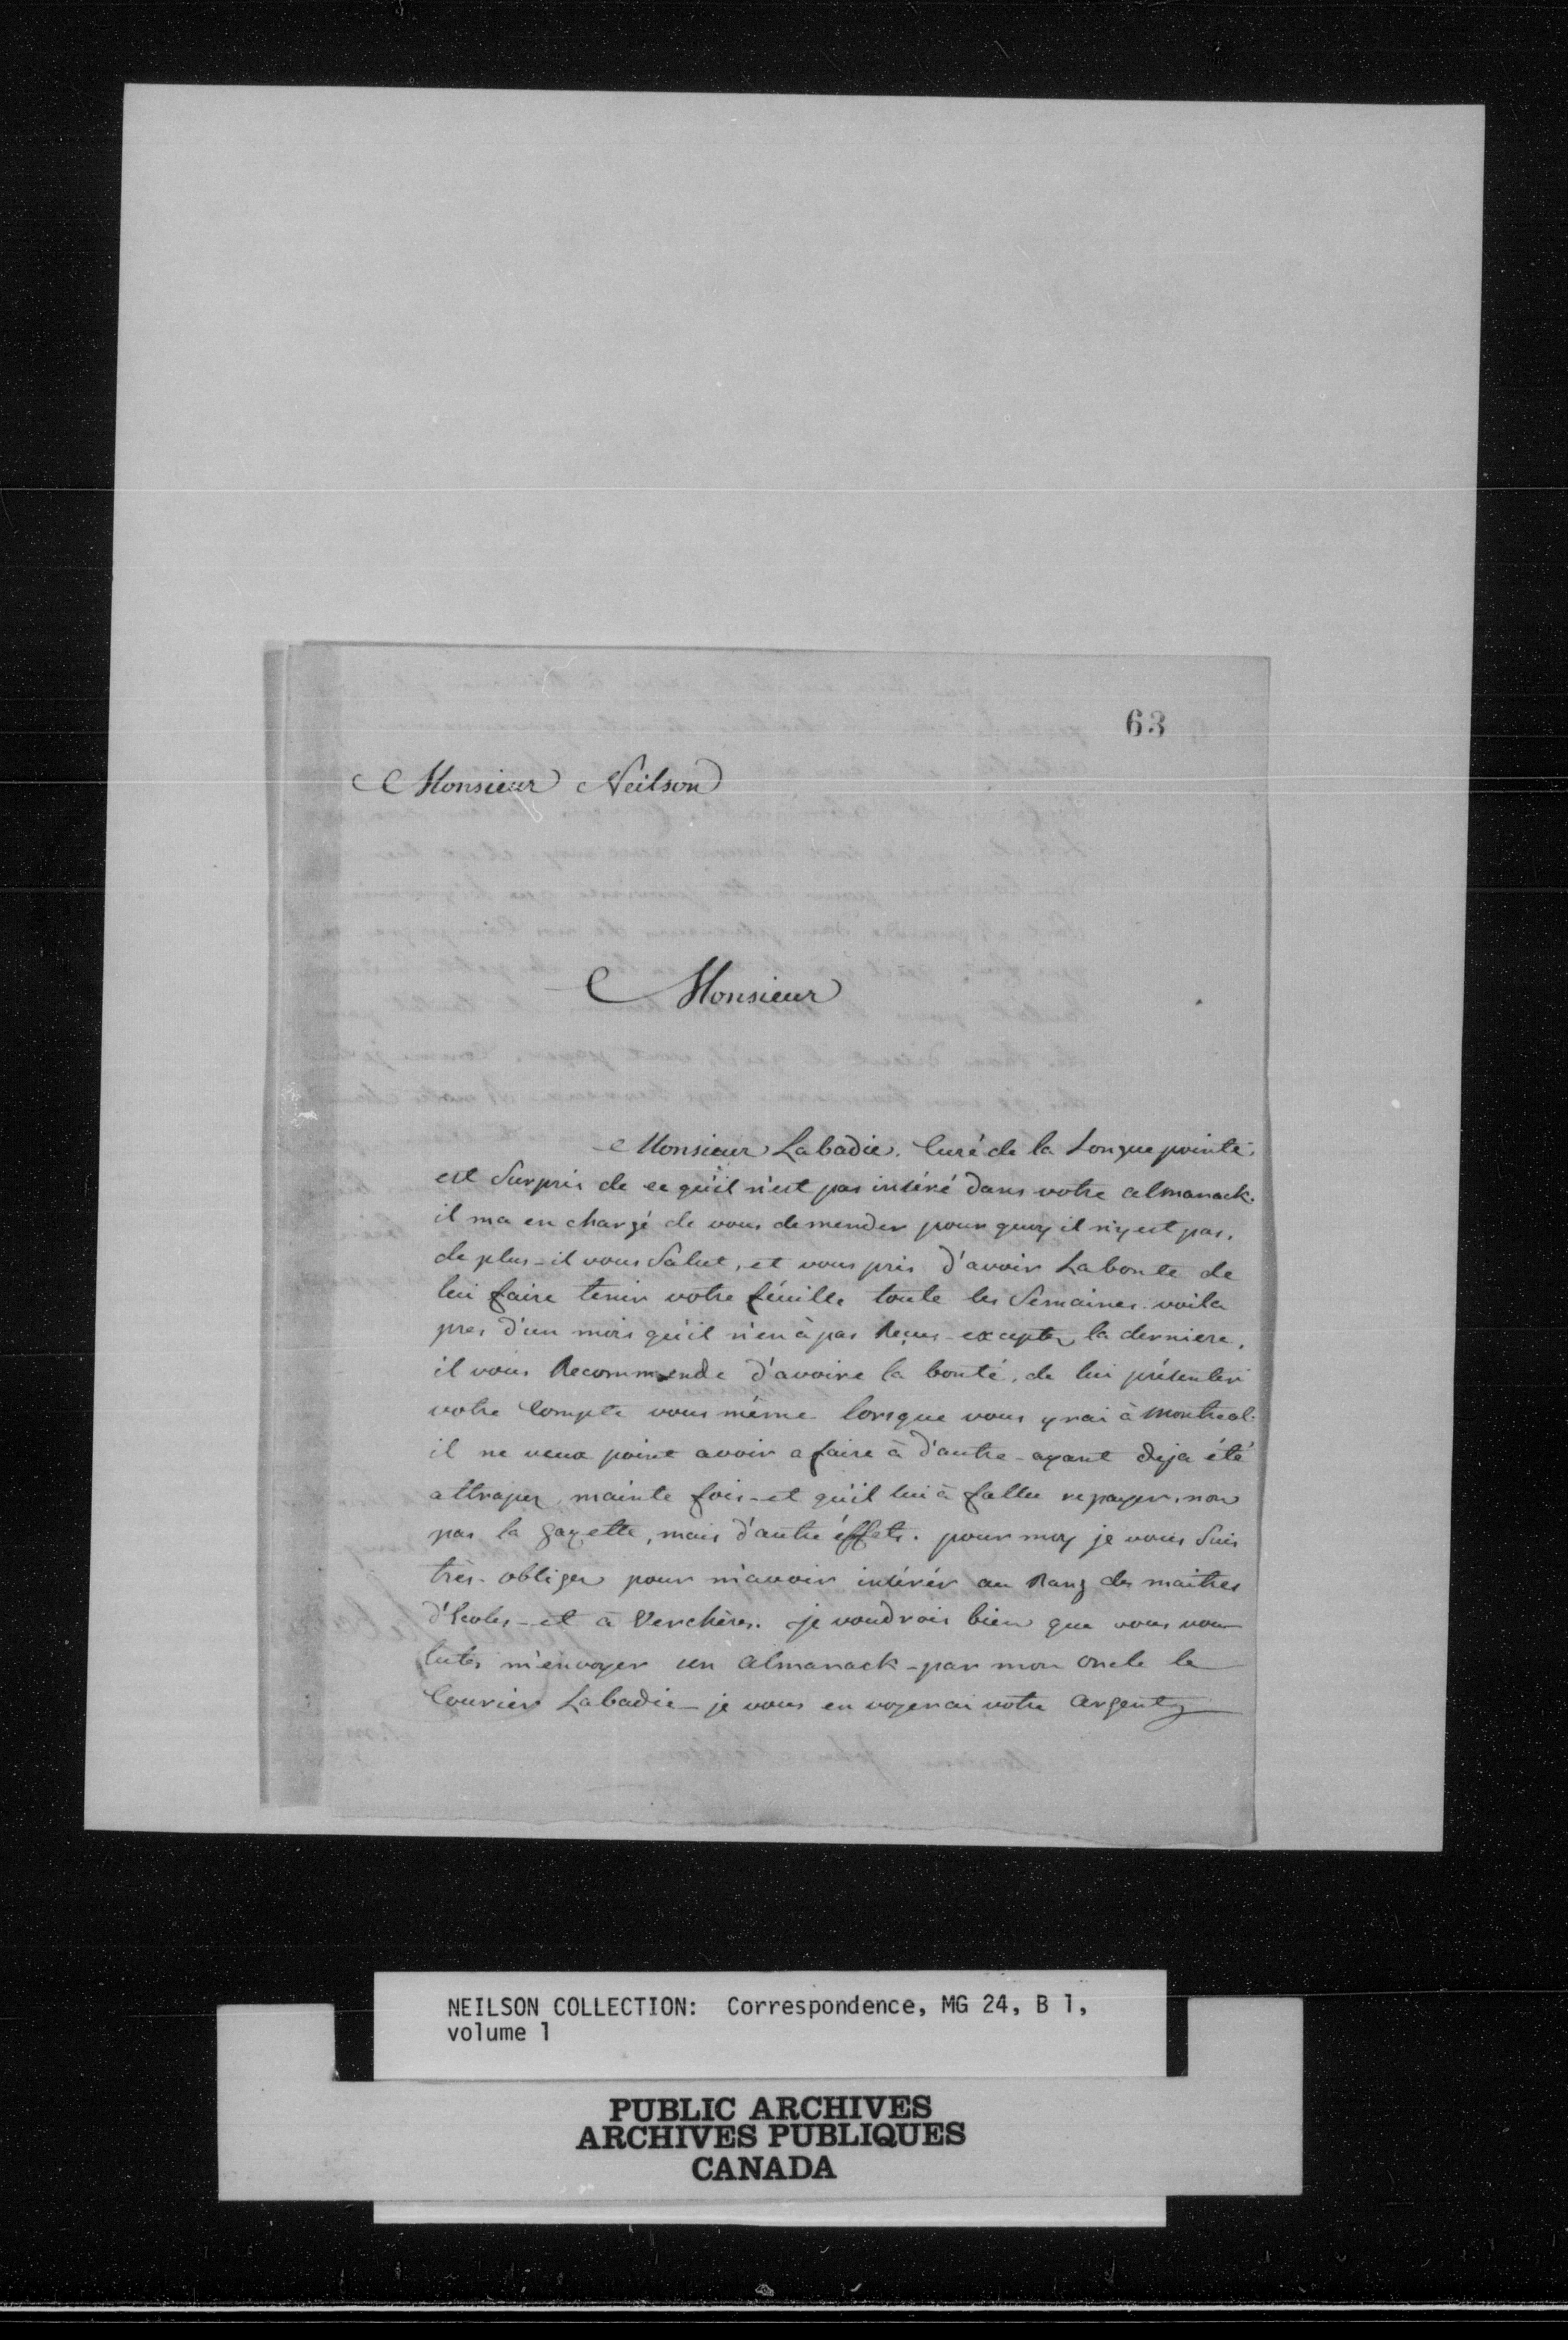 63
Monsieur Neilson
Monsieur
Monsieur Labadie. Curé de la Longue pointe.
est Surpris de ce qu'il n'est pas inséré dans votre almanack.
il ma en chargé de vous demender pour quoy il n'y est pas.
de plus - il vous Salut, et vous pris d'avoir La bonte de
lui faire tenir votre féuille toute les Semaines. voila
pres d'un mois qu'il n'en à pas Reçus - exceptez la derniere.
il vous Recommende d'avoire la bonté, de lui présenter
votre Compte vous même lorsque vous yrai à Montreal.
il ne veux point avoir a faire à d'autre - ayant deja été
attrapez mainte fois - et qu'il lui à fallu repayer, non
pas la gazette, mais d'autre éffets. pour moy je vous Suis
très - obliger pour m'avoir insérér au Rang des maitres
d'Ecoles - et à Verchères. je voudrois bien que vous vou
lutes m'envoyer un almanack - par mon oncle le
Courier Labadie - je vous en voyerai votre argent
NEILSON COLLECTION: Correspondence, MG 24, B 1,
volume 1
PUBLIC ARCHIVES
ARCHIVES PUBLIQUES
CANADA